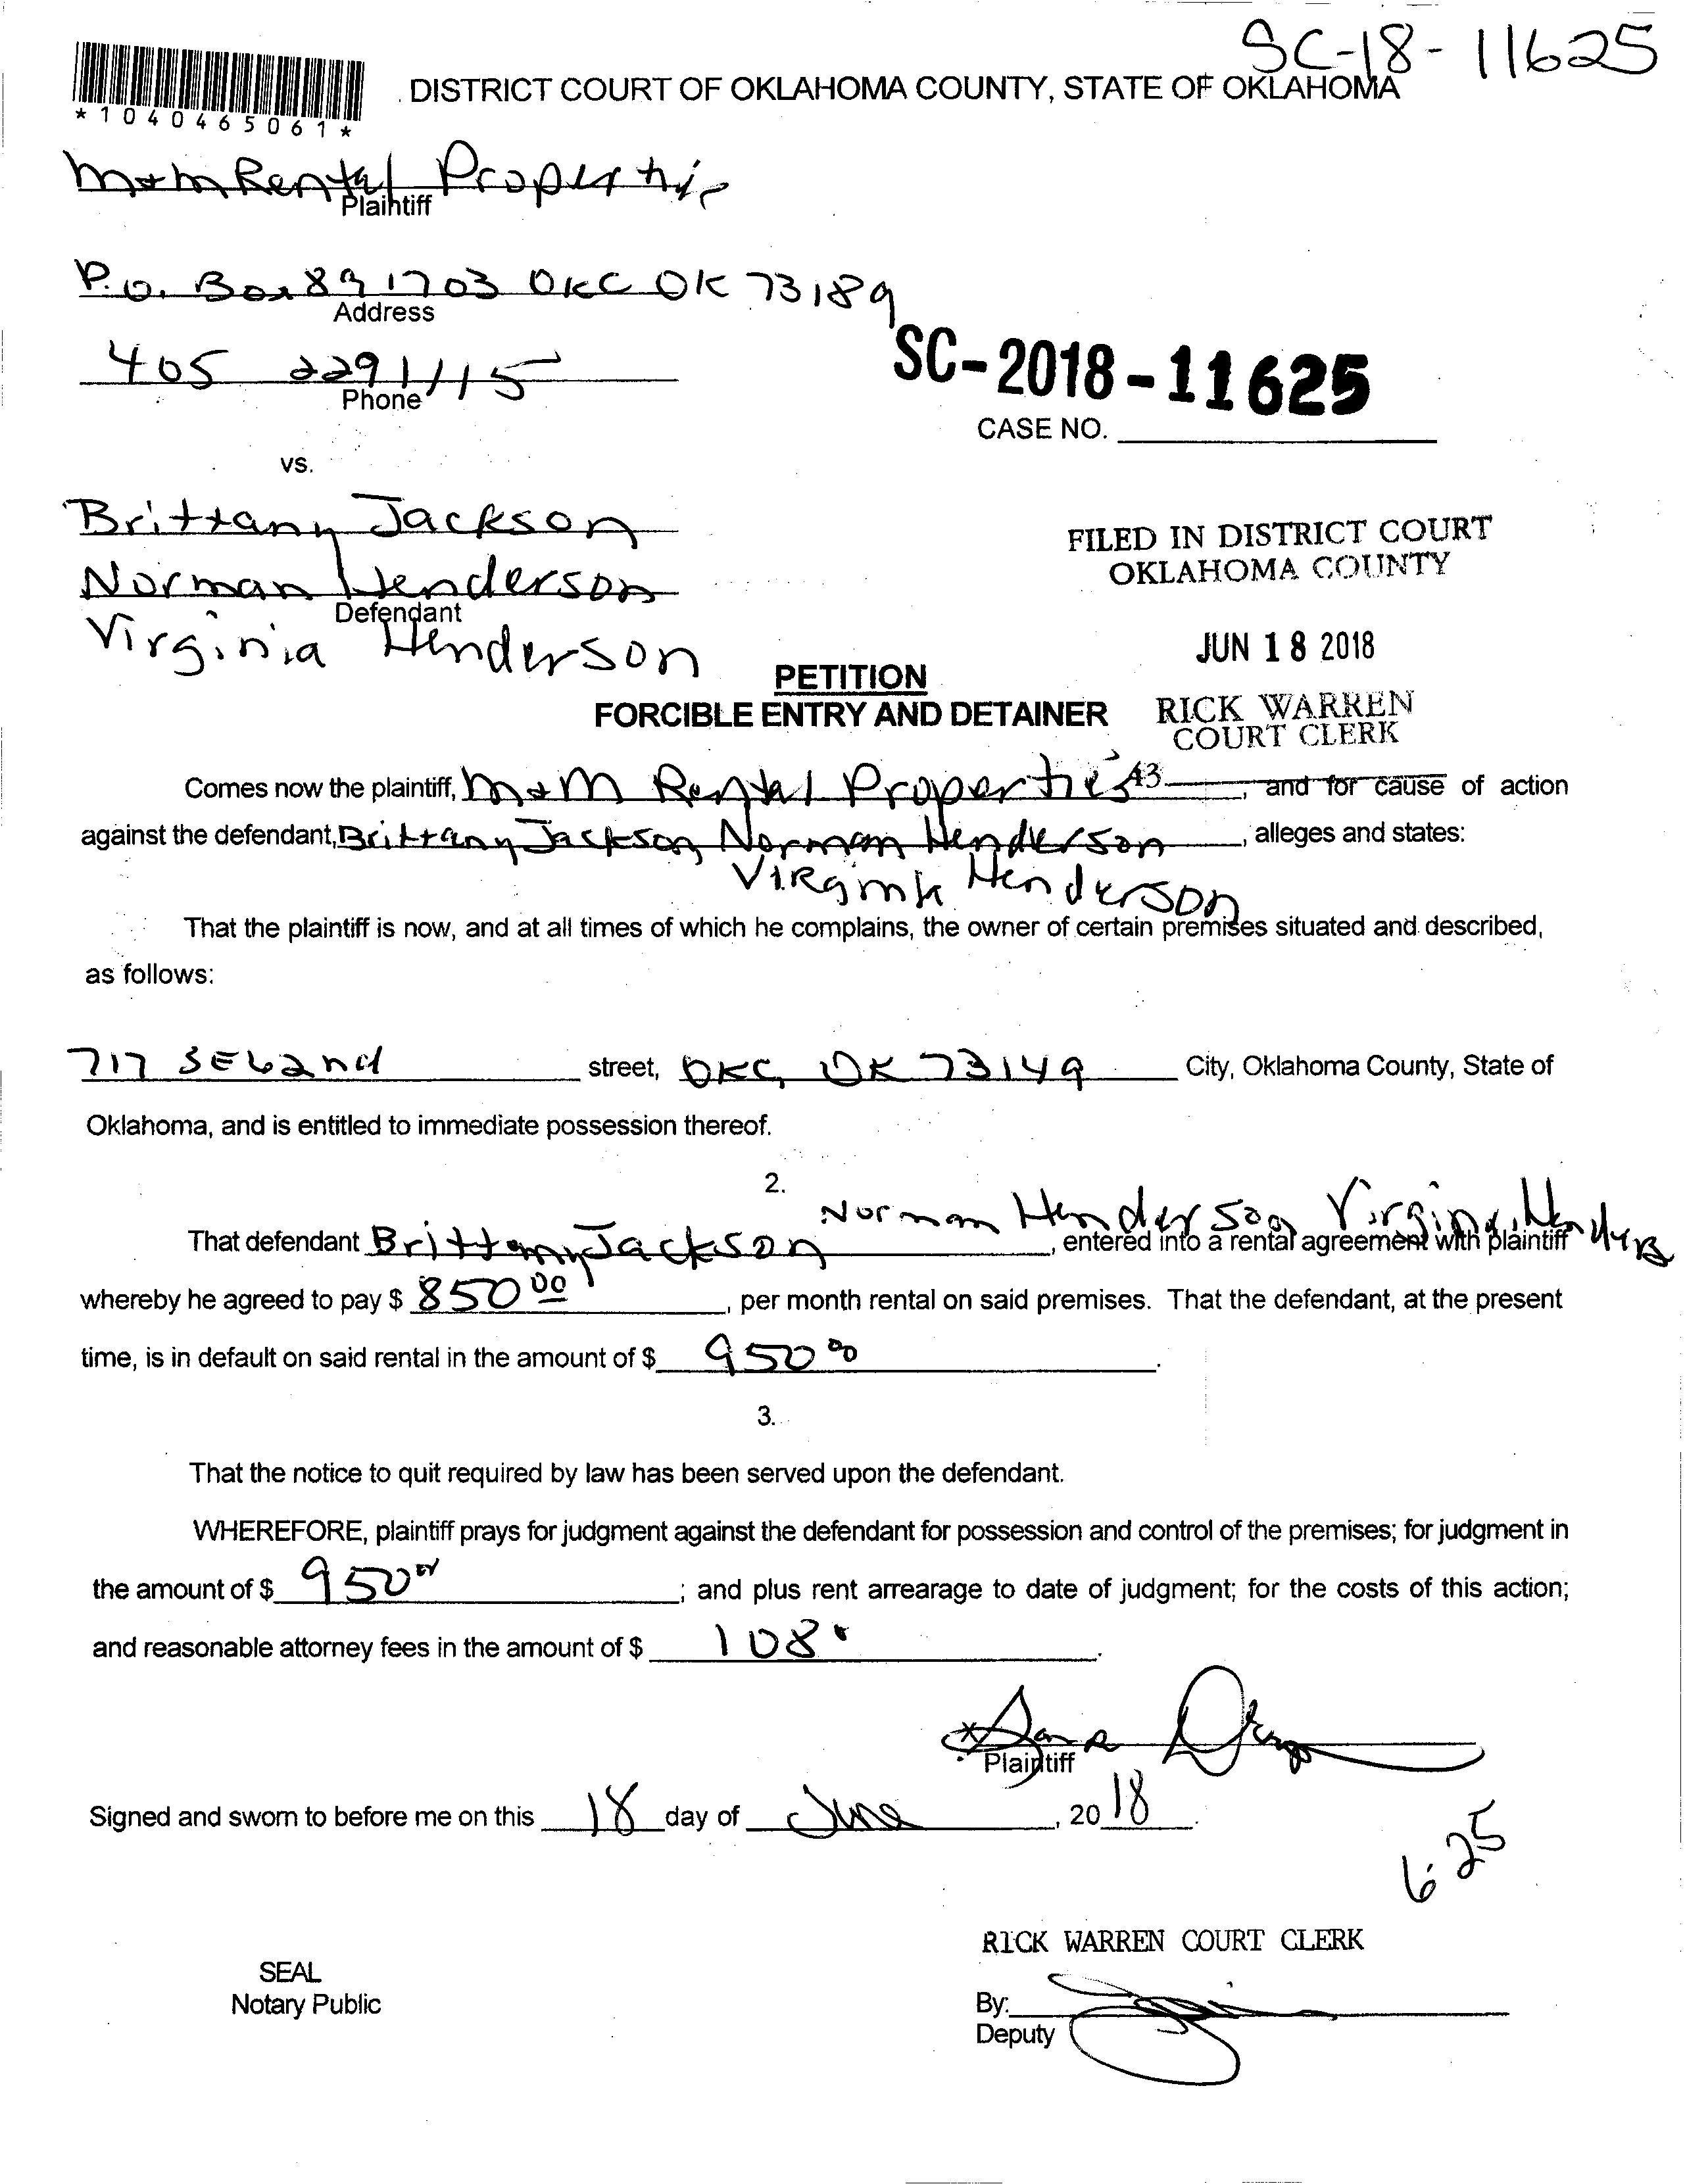 SC-18-11625
*1040465061*
DISTRICT COURT OF OKLAHOMA COUNTY, STATE OF OKLAHOMA
M+M Rental Properties
Plaintiff
P.O. Box 891703 OKC OK 73189
Address
405 2291115
Phone
SC-2018-11625
CASE NO.
vs.
Brittany Jackson
Norman Henderson
Defendant
Virginia Henderson
FILED IN DISTRICT COURT
OKLAHOMA COUNTY
JUN 18 2018
RICK WARREN
COURT CLERK
PETITION
FORCIBLE ENTRY AND DETAINER
Comes now the plaintiff, M+M Rental Properties 43, and for cause of action
against the defendant, Brittany Jackson Norman Henderson, alleges and states:
Virginia Henderson
That the plaintiff is now, and at all times of which he complains, the owner of certain premises situated and described,
as follows:
717 SE 62nd street, OKC, OK 73149 City, Oklahoma County, State of
Oklahoma, and is entitled to immediate possession thereof.
2.
Norman Henderson Virginia Henderson
That defendant Brittany Jackson, entered into a rental agreement with plaintiff
whereby he agreed to pay $ 850 00, per month rental on said premises. That the defendant, at the present
time, is in default on said rental in the amount of $ 950 00.
3.
That the notice to quit required by law has been served upon the defendant.
WHEREFORE, plaintiff prays for judgment against the defendant for possession and control of the premises; for judgment in
the amount of $ 950; and plus rent arrearage to date of judgment; for the costs of this action;
and reasonable attorney fees in the amount of $ 108.
Plaintiff
Signed and sworn to before me on this 18 day of June, 2018.
6.25
RICK WARREN COURT CLERK
SEAL
Notary Public
By:
Deputy